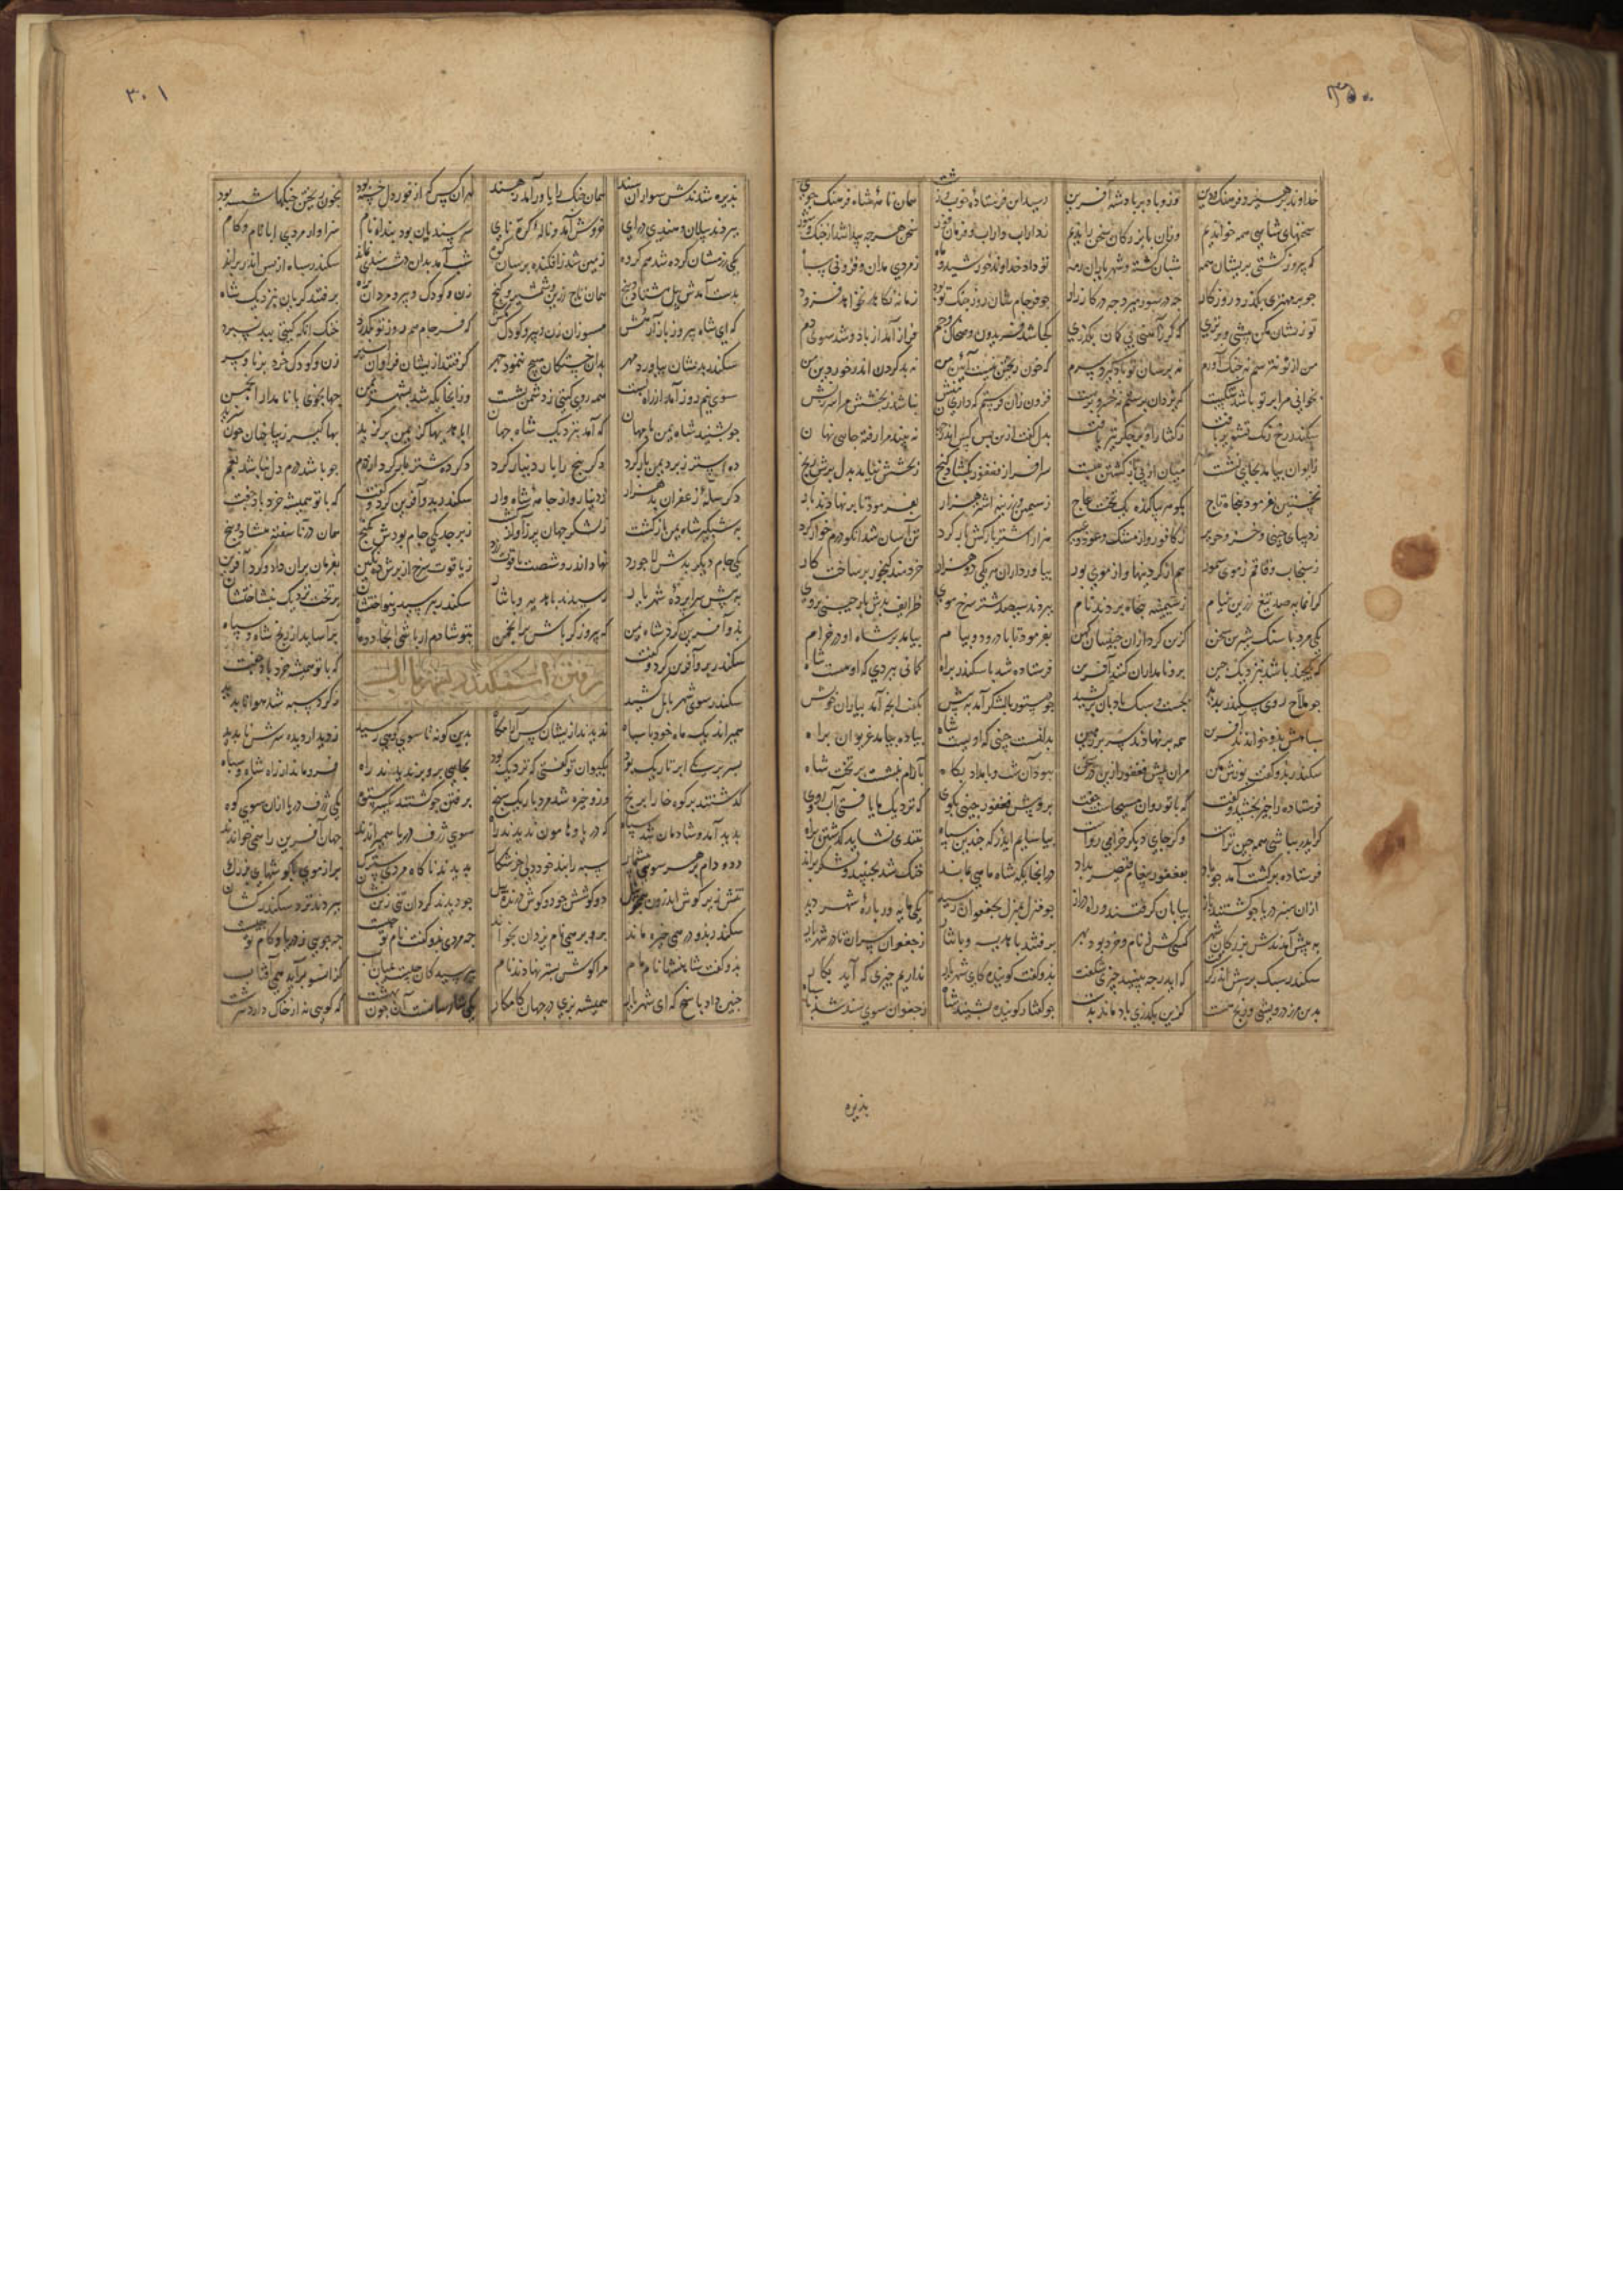 ۳۵۰
خداوند هر سپر و فرهنگ و دین تو زو باد بر پادشه آفرین رسید این فرستاده نوبت همان نامه شاه فرهنگ جوی
سخنهای شاهی همه خواندیم وزان با بزرگان سخن راندیم ز داراب و دارا و فرمان فور سخن هر چه پیدا شد از جنگ و سور
که پیروز گشتی بریشان همه شبان گشته و شهریاران رمه تو داد خداوند خورشید و ماه ز مردی مدان و فزونی سپاه
چو بر مهتری بگذرد روزگار چه در سور میرد چه در کارزار چو فرجام شان روز جنگ تو بود زمانه نکاهد نخواهد فزود
تو زیشان مکن بیشی و برتری که گر آهنی بی گمان بگذری کجا شد فریدون و ضحاک و جم فراز آمد از باد و شد سوی دم
من از تو نترسم نه جنگ آورم نه برسان تو باد گیرد سرم که خون ریختن نیست آئین من نه بد کردن اندر خور دین من
بخوانی مرا بر تو باشد شکست که یزدان پرستم نه خسرو پرست فزون زان فرستم که داری منش نباشد ز بخشش مرا سرزنش
سکندر رخ از رنگ تشویر یافت ز گفتار او بر جگر تیر یافت بدل گفت ازین پس کس اندر جهان نه بیند مرا رفته جایی نهان
ز ایوان بیامد بجای نشست میان از پی بازگشتن ببست سرافراز فغفور بگشاد گنج ز بخشش نیامد بدل برش رنج
نخستین بفرمود پنجاه تاج بگوهر بیاگنده یک تخت عاج ز سیمین و زرینه اشتر هزار بفرمود تا بر نهادند بار
ز دیبای چینی و خز و حریر ز کافور و از مشک و عود و عبیر هزار اشتر بارکش بار کرد تن آسان شد آنکو درم خوار کرد
ز سنجاب و قاقم ز موی سمور هم از گردنیها و از موی بور بیاورد از هر یکی ده هزار خردمند گنجور بر ساخت کار
گرانمایه صد تیغ زرین نیام ز شیشه جاه بردند نام ببردند سیصد شتر سرخ موی طرایف بدش بار چینی بروی
یکی مرد با سنگ شیرین سخن گزین کرد از آن چینیان کهن بفرمود تا با درود و پیام بیامد بر شاه او در خرام
که یکچند باشد بنزدیک چین برو نامداران کنند آفرین فرستاده شد با سکندر براه گمانی ببردی که او هست شاه
چو ملاح روی سکندر بدید بجست و سبک بادبان برکشید چو دستور با لشکر آمد به پیش بگفت آنچه آمد بیاران خویش
سپاهش بدو خواندند آفرین همه بر نهادند سر بر زمین بدانست چینی که او هست شاه پیاده بیامد غریوان براه
سکندر بدو گفت پوزش مکن مران پیش فغفور ازین در سخن ببود آن شب و بامداد پگاه بآرام بنشست بر تخت شاه
فرستاده را چیز بخشید و گفت که با تو روان مسیحاست جفت برو پیش فغفور چینی بگوی که نزدیک ما یافتی آب روی
گر ایدر بباشی همه چین تراست وگر جای دیگر خرامی رواست بیاسایم ایدر که چندین سپاه بتندی نشاید گذشتن براه
فرستاده برگشت و آمد چو باد بفغفور پیغام قیصر بداد درانجایگه شاه ماهی بماند خنک شد بجنبید و لشکر براند
ازان سبز دریا چو گشتند باز بیابان گرفتند و راه دراز چو منزل بمنزل بجغوان رسید یکی مایه ور باره شهر دید
به پیش آمدندش بزرگان شهر کسی کش ز نام و خرد بود بهر برفتند با هدیه و با نثار ز جغوان سران تا در شهریار
سکندر سبک پرسش اندر گرفت که ایدر چه بینید چیزی شگفت بدو گفت گوینده کای شهریار نداریم چیزی که آید بکار
بدین مرز درویشی و رنج هست کزین بگذری باد ماند بدست چو گفتار گوینده بشنید شاه ز جغوان سوی سند شد با سپاه
پذیره
۳۰۱
پذیره شدندش سواران سند همان جنگ را یاور آمد ز هند هر آن کس که از فور دل خسته بود بخون ریختن جنگها شسته بود
ببردند پیلان و هندی درای خروش آمد و ناله کرنای سر سندیان بود بنداه نام سزاوار مردی ابا نام و کام
یکی رزمشان کرده شد هم گروه زمین شد ز افکنده برسان کوه شب آمد بدان دشت سندی نماند سکندر سپاه از پس اندر براند
بدست آمدش پیل هشتاد و پنج همان تاج زرین و شمشیر و گنج زن و کودک و پیر و مردان براه برفتند گریان بنزدیک شاه
که ای شاه پیروز باز آر هش مسوزان زن و پیر و کودک مکش که فرجام هم روز تو بگذرد خنک آنکه گیتی ببد نسپرد
سکندر بریشان نیاورد مهر بدان خستگان هیچ ننمود چهر گرفتند ازیشان فراوان اسیر زن و کودک خرد و برنا و پیر
سوی نیمروز آمد از راه بست همه روی گیتی ز دشمن بشست وزانجایگه شد بشهر یمن جهانجوی با نامدار انجمن
چو بشنید شاه یمن با مهان که آمد بنزدیک شاه جهان ابا هدیها کز یمن برگزید بها گیر و زیبا چنان چون سزید
ده استر ز برد یمن بار کرد دگر پنج را بار دینار کرد دگر ده شتر بار کرد از درم چو باشد درم دل نباشد بغم
دگر سله زعفران بد هزار ز دینار و از جامه شاهوار سکندر بدید و آفرین کرد و گفت که با تو همیشه خرد باد جفت
به شبگیر شاه یمن بازگشت ز لشکر جهان پر ز آواز گشت زبرجد یکی جام بودش بگنج همان در ناسفته هشتاد و پنج
یکی جام دیگر بدش لاجورد نهاد اندرو شصت یاقوت زرد ز یاقوت سرخ از برش ده نگین بفرمان بران داد و کرد آفرین
به پیش سراپرده شهریار رسیدند با هدیه و با نثار سکندر بپرسید و بنواختشان بر تخت نزدیک بنشاختشان
بدو آفرین کرد شاه یمن که پیروزگر باش بر انجمن بتو شادم ار باشی ایدر دو ماه برآساید از رنج شاه و سپاه
سکندر برو آفرین کرد و گفت که با تو همیشه خرد باد جفت
رفتن اسکندر بشهر بابل
سکندر سوی شهر بابل کشید ز گرد سپه شد هوا ناپدید
همی راند یک ماه خود با سپاه ندیدند ازیشان کس آرامگاه بدین گونه تا سوی کوهی رسید ز دیدار دیده سرش ناپدید
بسر بر یکی ابر تاریک بود بکیوان تو گفتی که نزدیک بود بجایی برو بر ندیدند راه فرو ماند از راه شاه و سپاه
گذشتند بر کوه خارا برنج وزو خیره شد مرد باریک سنج برفتن چو گشتند یکسر ستوه یکی ژرف دریا از آن سوی کوه
پدید آمد و شادمان شد سپاه که دریا و هامون بدیدند راه سوی ژرف دریا همی راندند جهان آفرین را همی خواندند
دد و دام بر هر سوی بیشمار سپه را نبد خوردنی جز شکار پدید آمد ناگاه مردی سترگ پر از موی با گوشهای بزرگ
تنش زیر گوش اندرون همچو نیل دو گوشش چو دو گوش درنده پیل چو دیدند گردان تنی زین نشان ببردند نزد سکندر کشان
سکندر بدو در همی خیره ماند برو بر همی نام یزدان بخواند چه مردی بدو گفت نام تو چیست چه جویی ز دریا و کام تو چیست
بدو گفت شاها نیا نام مام مرا گوش بستر نهادند نام بپرسید کان چیست میان آب کزان سو برآید همی آفتاب
چنین داد پاسخ که ای شهریار همیشه بزی در جهان کامگار یکی شارسانست آن چون بهشت که گویی نه از خاک دارد سرشت